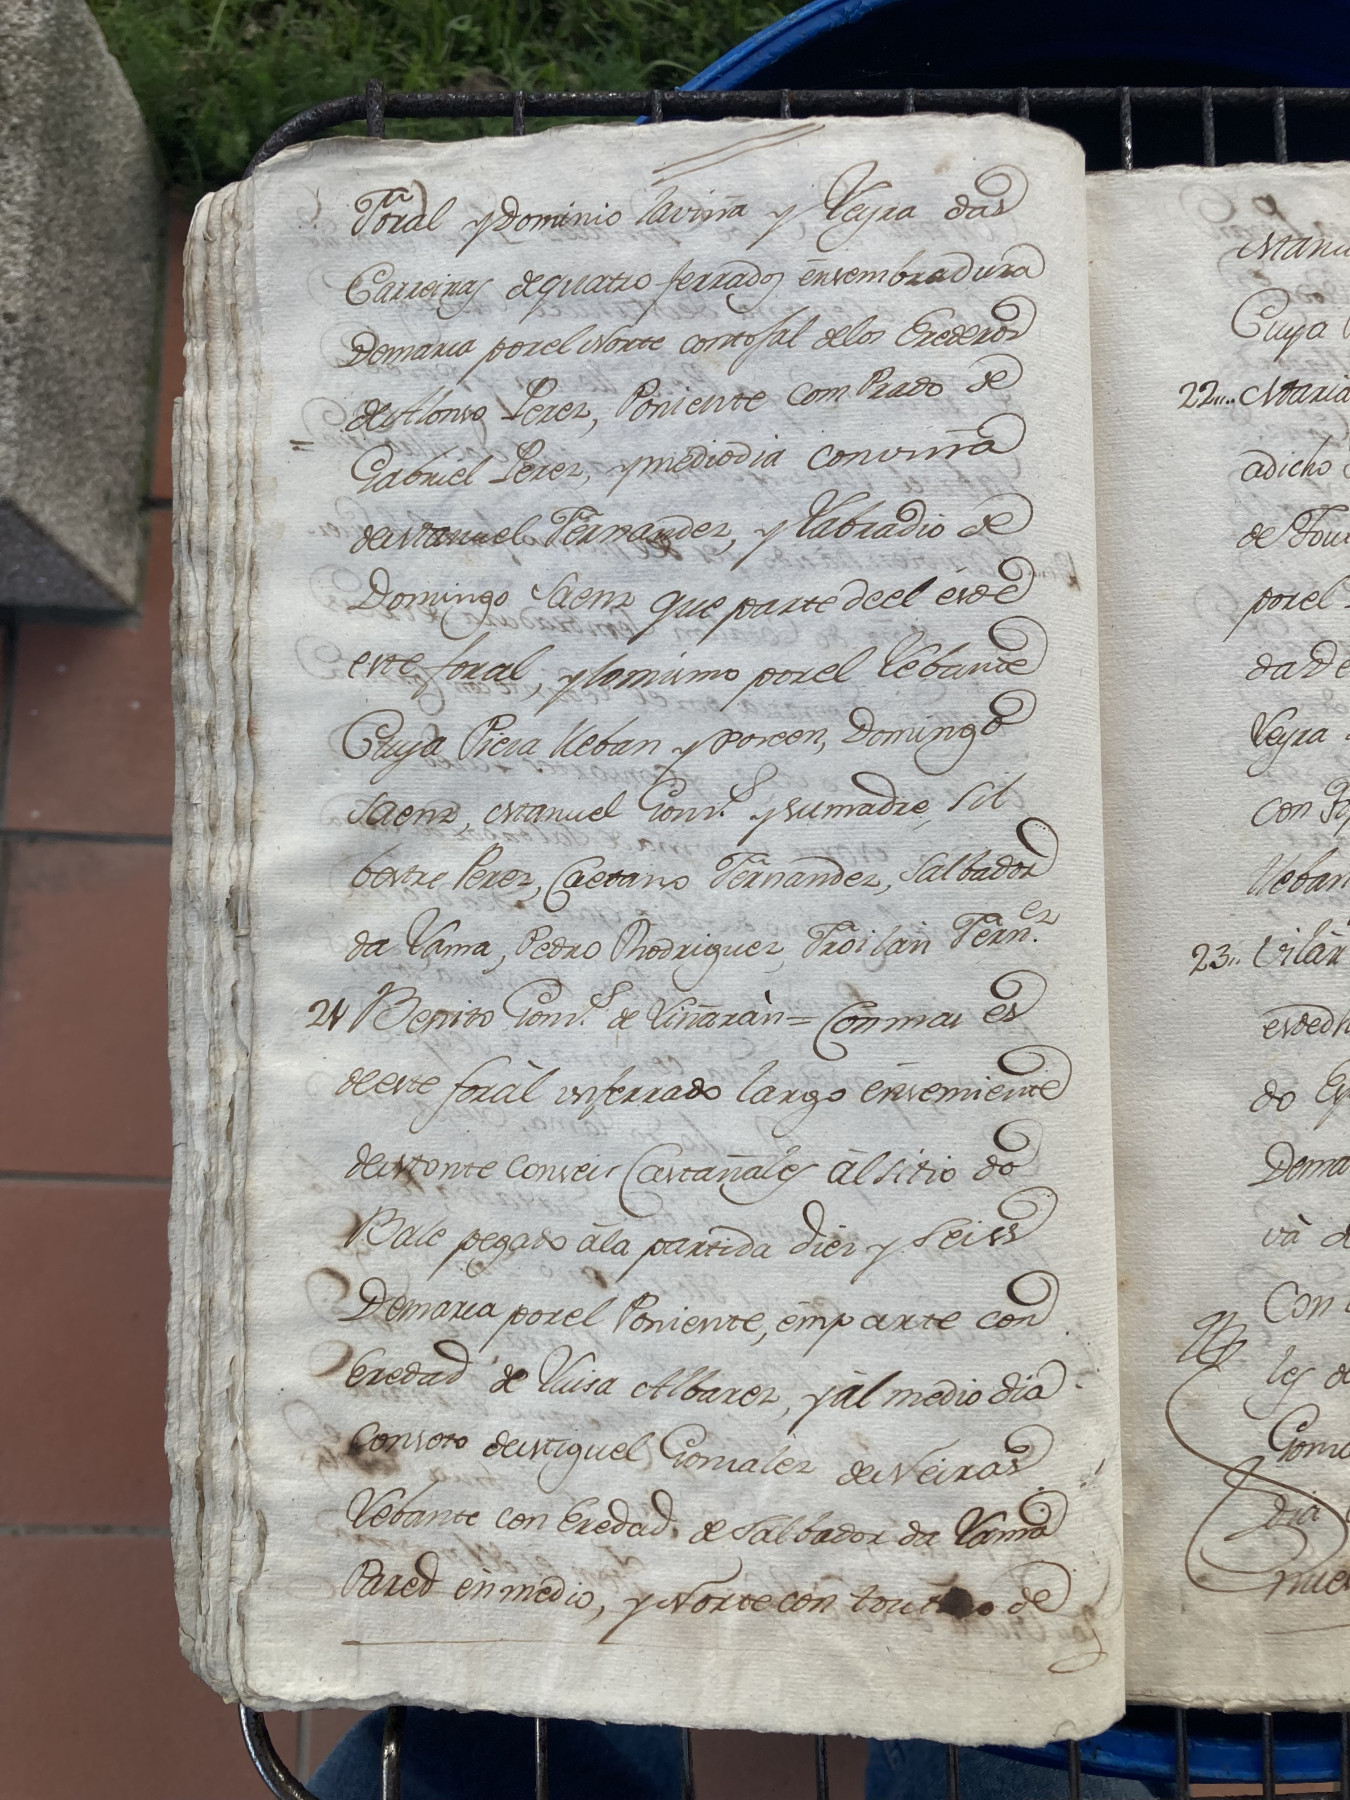 Foral y Dominio laviña y Leyra das
Carreiras dequatro ferrados ensembradura
Demaria porel Norte contoſal delos Erederos
de Alonso Perez, Poniente com Prado de
= Gabriel Perez, y mediodia conviña
de Manuel Fernandez, y Labradio de
Domingo Saenz que parte deel esde
este foral, y lomismo porel Lebante
Cuya Pieza lleban y Poseen, Domingo
Saenz, Manuel Gonz. y sumadre, Sil
bestre Perez, Caetano Fernandez, Salbador
da Lama, Pedro Rodriguez, Froilan Fern.ez
21 Benito Gonz. de Viñaràn = Con mas es
deeste foràl unferrado largo ensemiente
de Monte conseis Castañales àlsitio do
Bale pegado àla partida diez y Seiss
Demaria porel Poniente, emparte con
Eredad de Luisa Albarez, y àl medio dia
Consoto de Miguel Gonzalez de Neiras
Lebante con Eredad de Salbador da Lama
Pared en medio, y Norte con de
Manu
Cuya
22.... Maria
adicho
de Tou
porel
da de
Leyra
con
lleban
23.. Vilàr
esdedh
do
Dema
và d
Con
les de
Gonz
dia
nuel